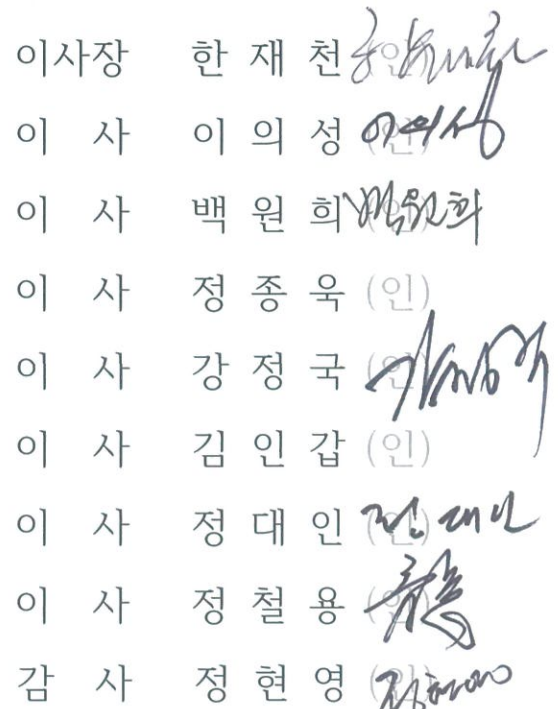 이사장 한 재 천 (인)
이 사 이 의 성 (인) 이의성
이 사 백 원 희 (인) 백원희
이 사 정 종 욱 (인)
이 사 강 정 국 (인)
이 사 김 인 갑 (인)
이 사 정 대 인 (인) 정대인
이 사 정 철 용 (인)
감 사 정 현 영 (인)